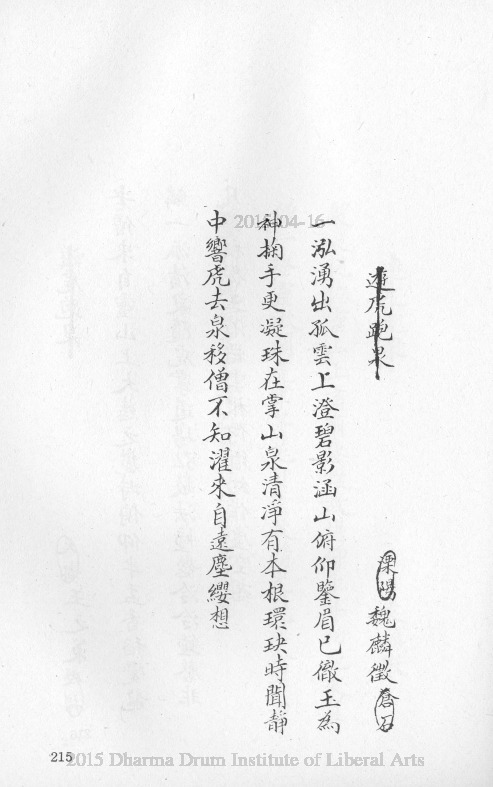 遊虎跑泉
溧陽魏麟徵蒼石
一泓湧出孤雲上澄碧影涵山俯仰鑒眉已徹玉為
神掬手更凝珠在掌山泉清淨有本根環玦時聞靜
中響虎去泉移僧不知濯來自遠塵纓想
2015-04-16
215
2015 Dharma Drum Institute of Liberal Arts